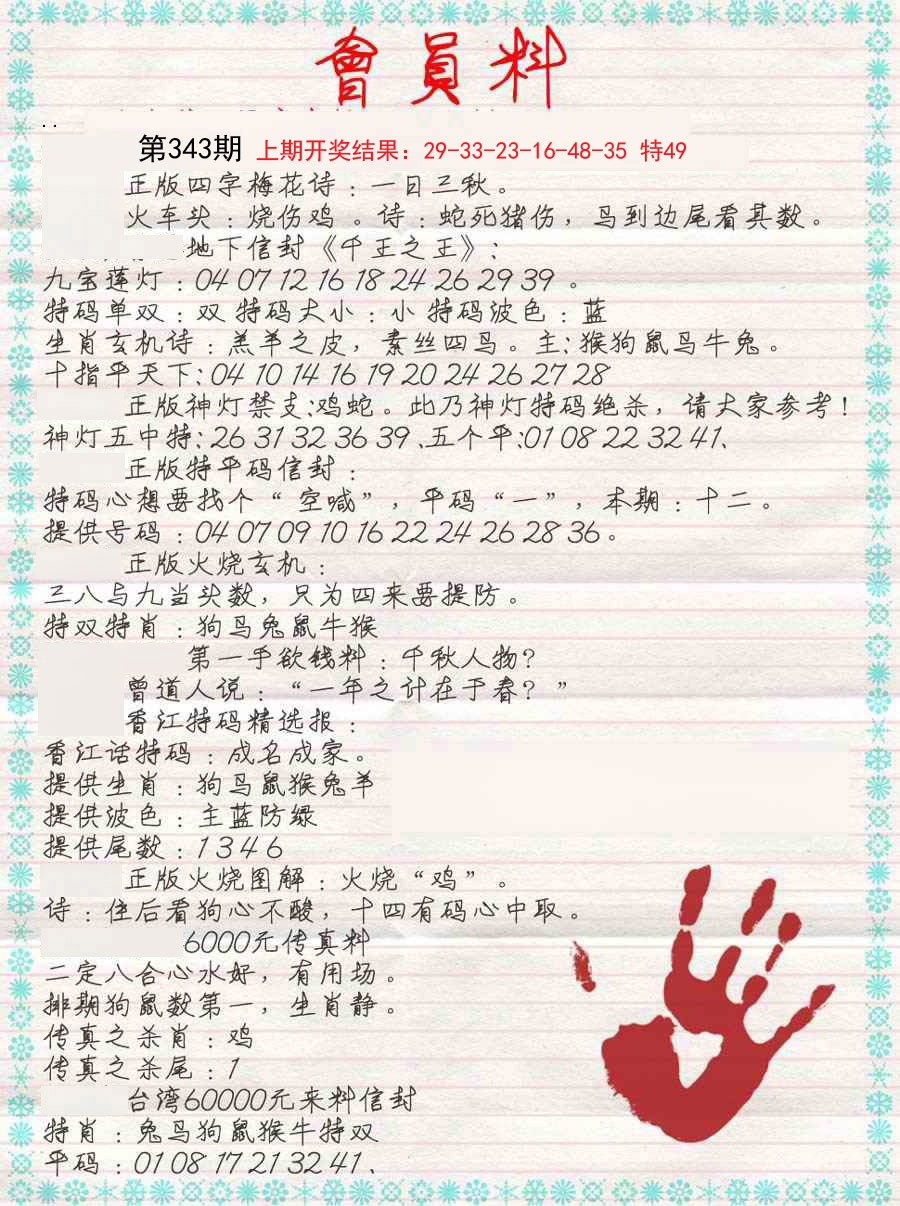 會員料
第343期 上期开奖结果：29-33-23-16-48-35 特49
正版四字梅花诗：一日三秋。
火车头：烧伤鸡。诗：蛇死猪伤，马到边尾看其数。
地下信封《千王之王》：
九宝莲灯：04 07 12 16 18 24 26 29 39 。
特码单双：双 特码大小：小 特码波色：蓝
生肖玄机诗：羔羊之皮，素丝四马。主：猴狗鼠马牛兔。
十指平天下：04 10 14 16 19 20 24 26 27 28
正版神灯禁支：鸡蛇。此乃神灯特码绝杀，请大家参考！
神灯五中特：26 31 32 36 39 、五个平：01 08 22 32 41、
正版特平码信封：
特码心想要找个“空喊”，平码“一”，本期：十二。
提供号码：04 07 09 10 16 22 24 26 28 36。
正版火烧玄机：
三八与九当头数，只为四来要提防。
特双特肖：狗马兔鼠牛猴
第一手欲钱料：千秋人物？
曾道人说：“一年之计在于春？”
香江特码精选报：
香江话特码：成名成家。
提供生肖：狗马鼠猴兔羊
提供波色：主蓝防绿
提供尾数：1 3 4 6
正版火烧图解：火烧“鸡”。
诗：住后看狗心不酸，十四有码心中取。
6000元传真料
二定八合心水好，有用场。
排期狗鼠数第一，生肖静。
传真之杀肖：鸡
传真之杀尾：1
台湾60000元来料信封
特肖：兔马狗鼠猴牛特双
平码：01 08 17 21 32 41、